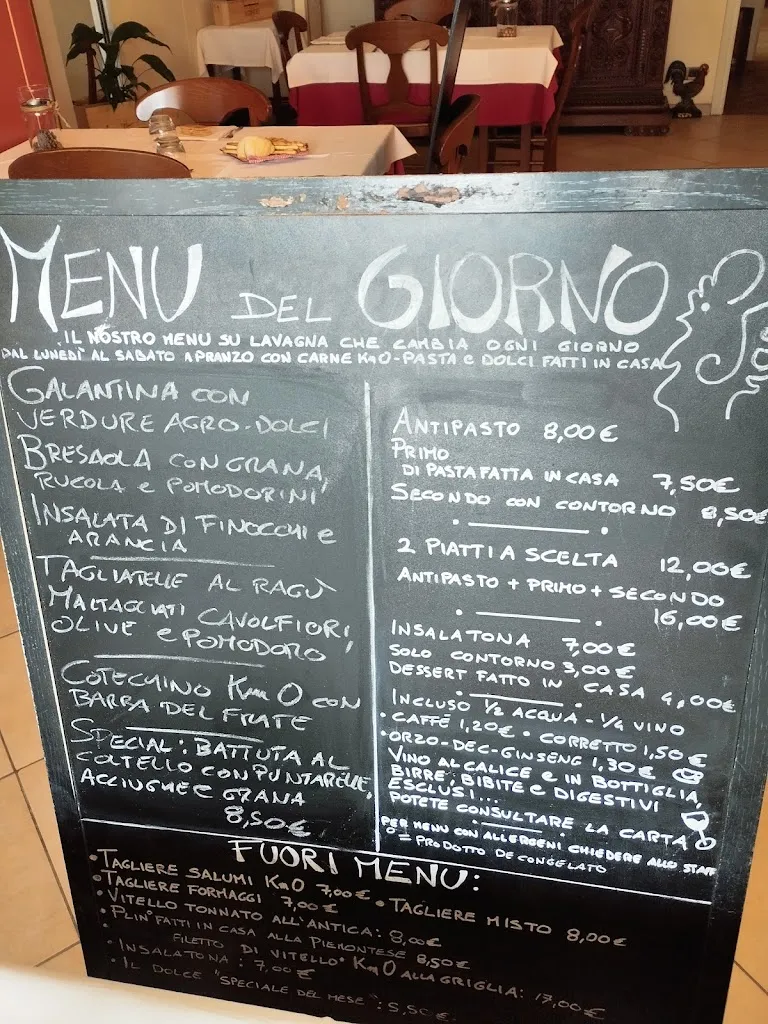 MENU DEL GIORNO
IL NOSTRO MENU SU LAVAGNA CHE CAMBIA OGNI GIORNO
DAL LUNEDÌ AL SABATO A PRANZO CON CARNE KM0-PASTA E DOLCI FATTI IN CASA
GALANTINA CON
VERDURE AGRO-DOLCI
BRESAOLA CON GRANA,
RUCOLA E POMODORINI
INSALATA DI FINOCCHI E
ARANCIA
TAGLIATELLE AL RAGÙ
MALTAGLIATI CAVOLFIORI,
OLIVE E POMODORO
COTECHINO KM0 CON
BARBA DEL FRATE
SPECIAL: BATTUTA AL
COLTELLO CON PUNTARELLE,
ACCIUGHE E GRANA
8,50€
ANTIPASTO 8,00€
PRIMO
DI PASTA FATTA IN CASA 7,50€
SECONDO CON CONTORNO 8,50€
2 PIATTI A SCELTA 12,00€
ANTIPASTO + PRIMO + SECONDO
16,00€
INSALATONA 7,00€
SOLO CONTORNO 3,00€
DESSERT FATTO IN CASA 4,00€
INCLUSO ½ ACQUA - ¼ VINO
• CAFFÈ 1,20€ • CORRETTO 1,50€
• ORZO-DEC-GINSENG 1,30€
VINO AL CALICE E IN BOTTIGLIA,
BIRRE, BIBITE E DIGESTIVI
ESCLUSI...
POTETE CONSULTARE LA CARTA
PER MENU CON ALLERGENI CHIEDERE ALLO STAFF
° = PRODOTTO DECONGELATO
FUORI MENU:
• TAGLIERE SALUMI KM0 7,00€ • TAGLIERE MISTO 8,00€
• TAGLIERE FORMAGGI 7,00€
• VITELLO TONNATO ALL'ANTICA: 8,00€
• PLIN° FATTI IN CASA ALLA PIEMONTESE 8,50€
• FILETTO DI VITELLO° KM0 ALLA GRIGLIA: 17,00€
• INSALATONA: 7,00€
• IL DOLCE "SPECIALE DEL MESE": 5,50€